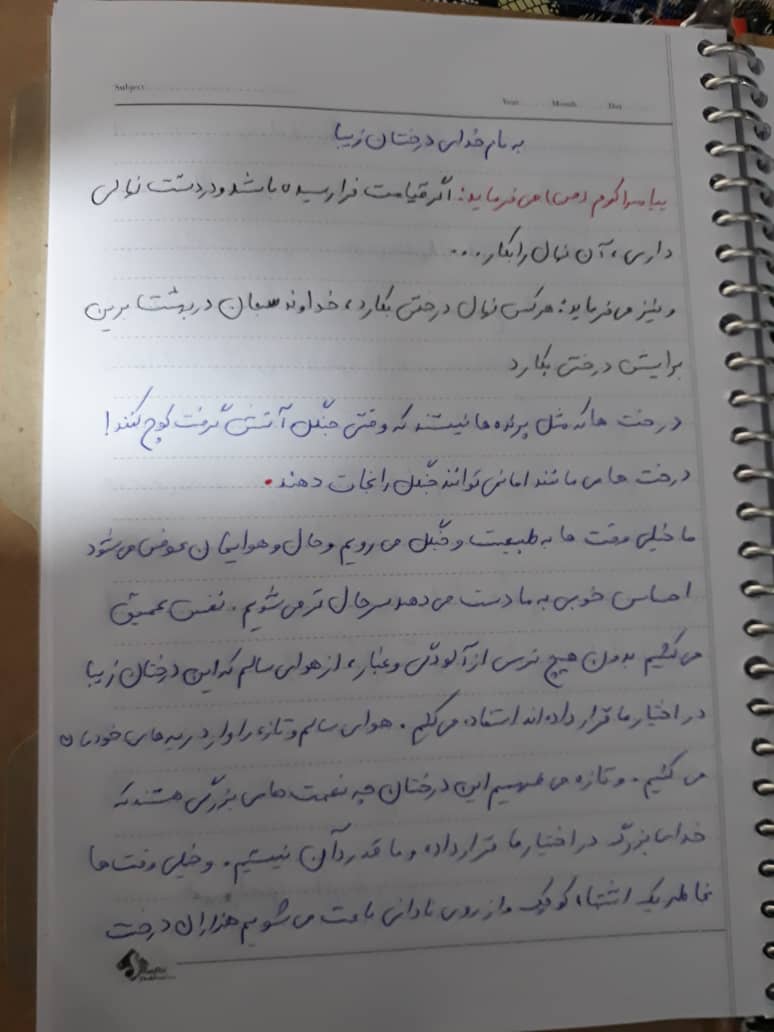 Subject:
Year: Month: Day:
به نام خدای درختان زیبا
پیامبر اکرم (ص) می فرماید: اگر قیامت فرا رسیده باشد و در دستت نهالی
داری، آن نهال را بکار...
و نیز می فرماید: هر کس نهال درختی بکارد، خداوند سبحان در بهشت برین
برایش درختی بکارد
درخت ها که مثل پرنده ها نیستند که وقتی جنگل آتش گرفت کوچ کنند!
درخت ها می مانند اما نمی توانند جنگل را نجات دهند.
ما خیلی وقت ها به طبیعت و جنگل می رویم و حال و هوایمان عوض می شود
احساس خوبی به ما دست می دهد سرحال تر می شویم. نفس عمیق
می کشیم بدون هیچ ترسی از آلودگی و غبار، از هوای سالم که این درختان زیبا
در اختیار ما قرار داده اند استفاده می کنیم. هوای سالم و تازه را وارد ریه های خودمان
می کنیم. و تازه می فهمیم این درختان چه نعمت های بزرگی هستند که
خدای بزرگ در اختیار ما قرار داده و ما قدردان آن نیستیم. و خیلی وقت ها
بخاطر یک اشتباه کوچک و از روی نادانی باعث می شویم هزاران درخت